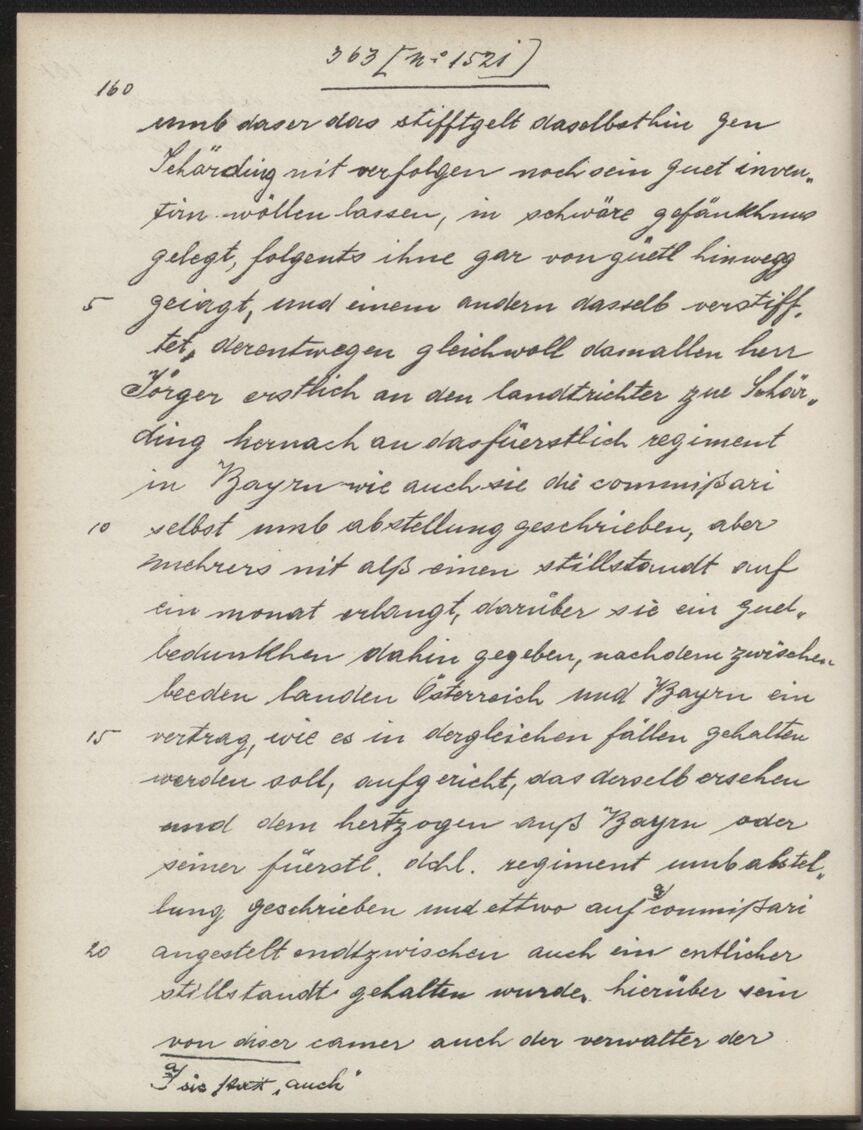 363 [nº 1521]
160
umb daser das stifftgelt daselbsthin gen
Schärding nit verfolgen noch sein guet inven„
tirn wöllen lassen, in schwäre gefänkhnus
gelegt, folgents ihne gar von güetl hinwegg
5 geiagt, und einem andern dasselb verstiff„
tet, derentwegen gleichwoll damallen herr
Jörger erstlich an den landtrichter zue Schär„
ding hernach an das füerstlich regiment
in Bayrn wie auch sie die commißari
10 selbst umb abstellung geschrieben, aber
mehrers nit alß einen stillstandt auf
ein monat erlangt, darüber sie ein gued„
bedunkhen dahin gegeben, nachdem zwischen
beeden landen Österreich und Bayrn ein
15 vertrag, wie es in dergleichen fällen gehalten
werden soll, aufgericht, das derselb ersehen
und dem hertzogen auß Bayrn oder
seiner füerstl. dchl. regiment umb abstel„
lung geschrieben und ettwo auf a) commißari
20 angestelt endtzwischen auch ein entlicher
stillstandt gehalten wurde, hierüber sein
von diser camer auch der verwalter der
a) sic statt „auch“